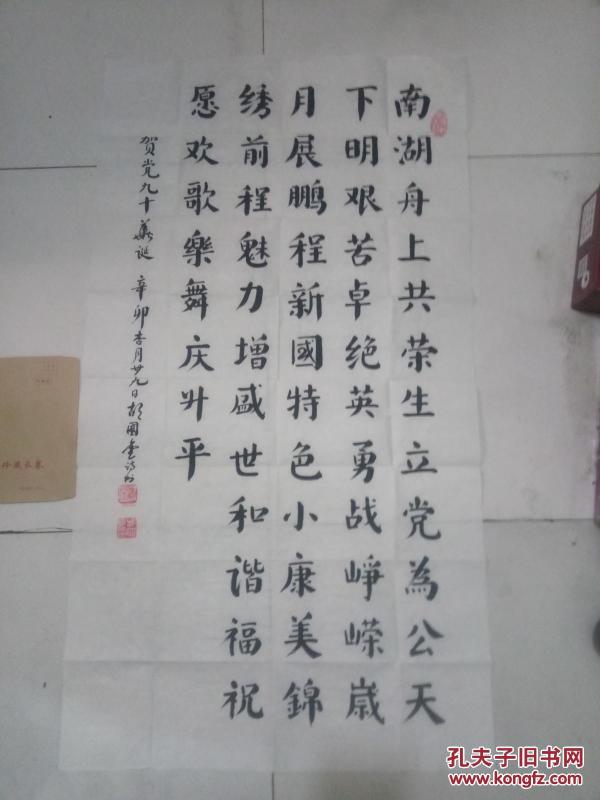 南湖舟上共荣生立党為公天
下明艰苦卓绝英勇战峥嵘歲
月展鹏程新國特色小康美錦
绣前程魅力增盛世和谐福祝
愿欢歌樂舞庆升平
贺党九十華诞 辛卯杏月廿九日胡國
珍藏衣幕
孔夫子旧书网
www.kongfz.com